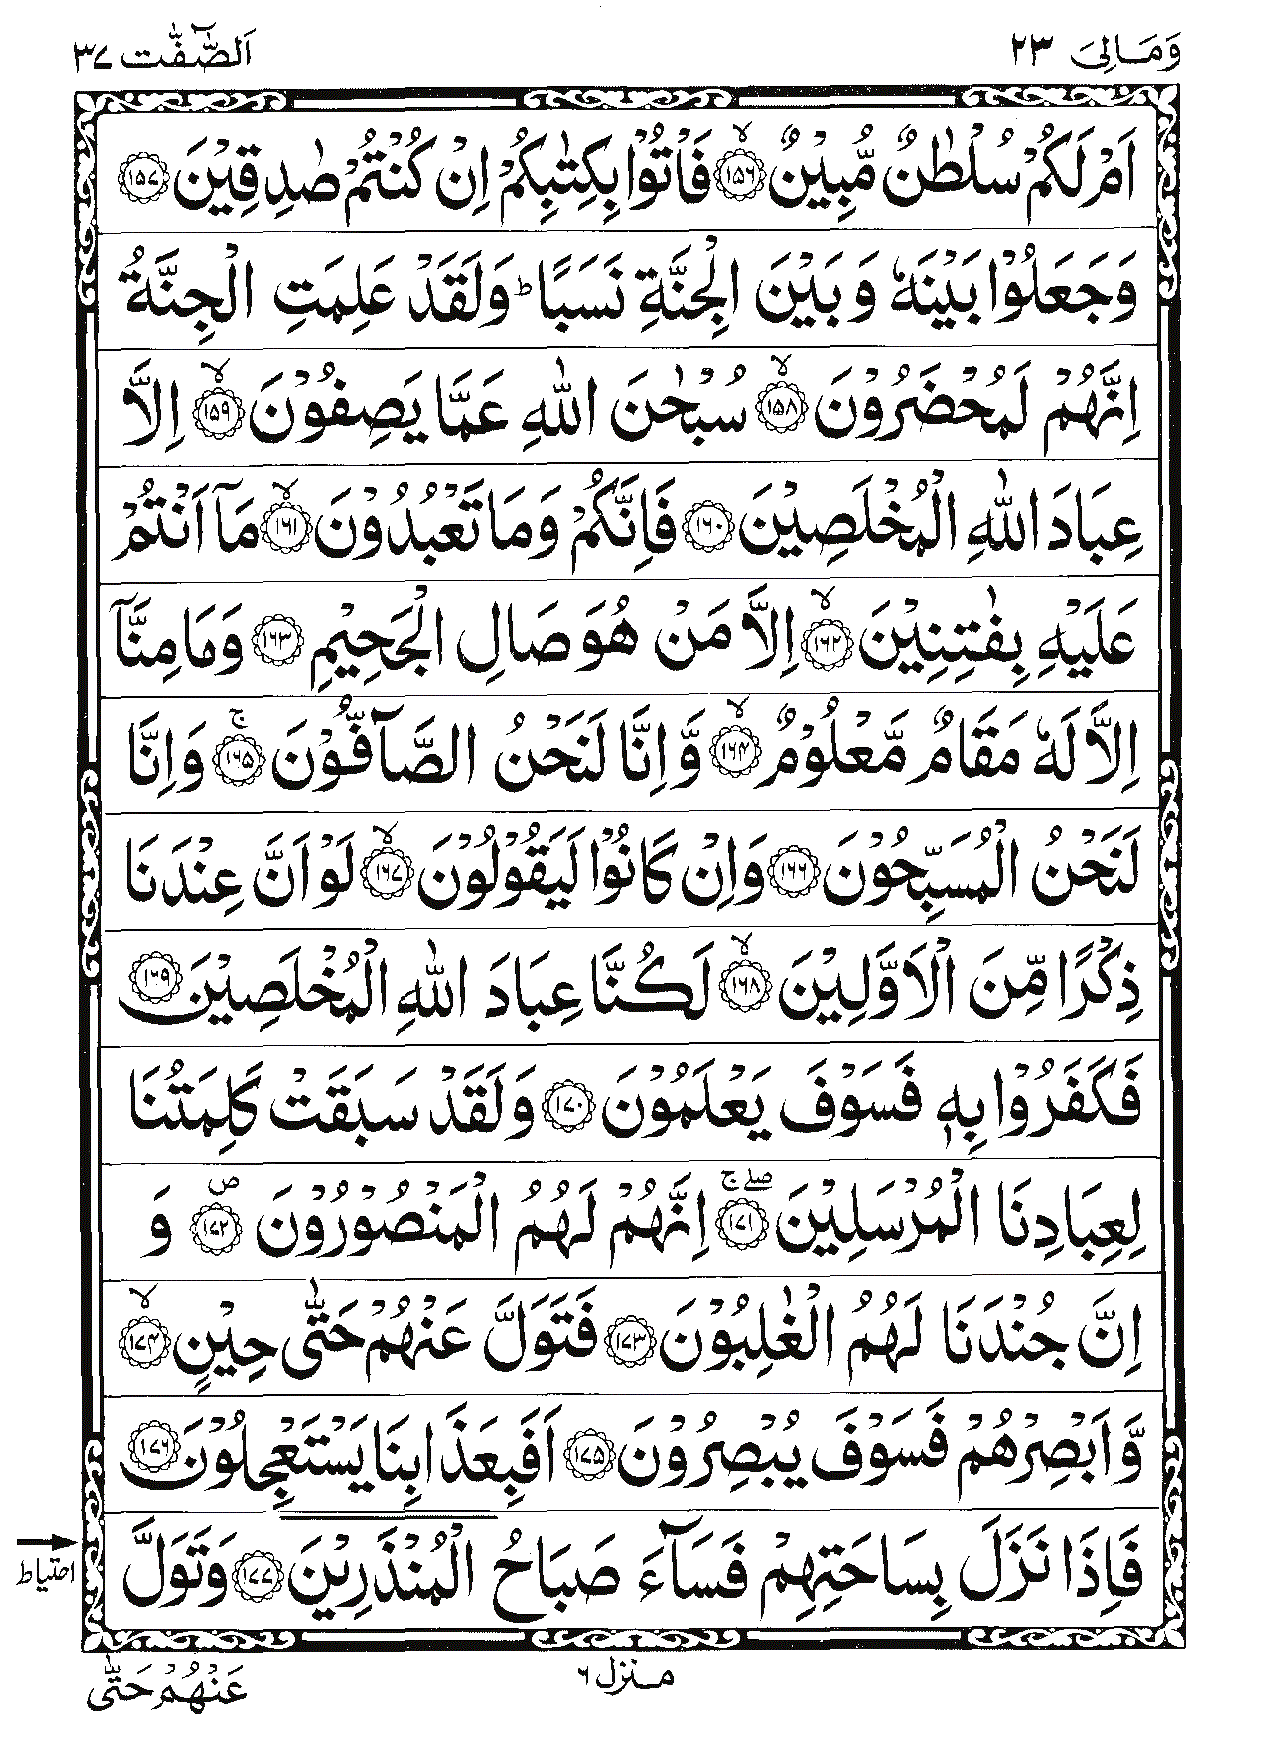 وَمَالِیَ ۲۳ اَلصّٰٓفّٰت ۳۷
اَمْ لَكُمْ سُلْطٰنٌ مُّبِیْنٌ ۙ‏﴿۱۵۶﴾ فَاْتُوْا بِكِتٰبِكُمْ اِنْ كُنْتُمْ صٰدِقِیْنَ ﴿۱۵۷﴾
وَجَعَلُوْا بَیْنَهٗ وَ بَیْنَ الْجِنَّةِ نَسَبًا ؕ وَلَقَدْ عَلِمَتِ الْجِنَّةُ
اِنَّهُمْ لَمُحْضَرُوْنَ ۙ﴿۱۵۸﴾ سُبْحٰنَ اللّٰهِ عَمَّا یَصِفُوْنَ ۙ﴿۱۵۹﴾ اِلَّا
عِبَادَ اللّٰهِ الْمُخْلَصِیْنَ ﴿۱۶۰﴾ فَاِنَّكُمْ وَمَا تَعْبُدُوْنَ ۙ﴿۱۶۱﴾ مَاۤ اَنْتُمْ
عَلَیْهِ بِفٰتِنِیْنَ ۙ﴿۱۶۲﴾ اِلَّا مَنْ هُوَ صَالِ الْجَحِیْمِ ﴿۱۶۳﴾ وَمَا مِنَّاۤ
اِلَّا لَهٗ مَقَامٌ مَّعْلُوْمٌ ۙ﴿۱۶۴﴾ وَّ اِنَّا لَنَحْنُ الصَّآفُّوْنَ ۚ﴿۱۶۵﴾ وَاِنَّا
لَنَحْنُ الْمُسَبِّحُوْنَ ﴿۱۶۶﴾ وَاِنْ كَانُوْا لَیَقُوْلُوْنَ ۙ﴿۱۶۷﴾ لَوْ اَنَّ عِنْدَنَا
ذِكْرًا مِّنَ الْاَوَّلِیْنَ ۙ﴿۱۶۸﴾ لَكُنَّا عِبَادَ اللّٰهِ الْمُخْلَصِیْنَ ﴿۱۶۹﴾
فَكَفَرُوْا بِهٖ فَسَوْفَ یَعْلَمُوْنَ ﴿۱۷۰﴾ وَلَقَدْ سَبَقَتْ كَلِمَتُنَا
لِعِبَادِنَا الْمُرْسَلِیْنَ ۖۚ﴿۱۷۱﴾ اِنَّهُمْ لَهُمُ الْمَنْصُوْرُوْنَ ۪﴿۱۷۲﴾ وَ
اِنَّ جُنْدَنَا لَهُمُ الْغٰلِبُوْنَ ﴿۱۷۳﴾ فَتَوَلَّ عَنْهُمْ حَتّٰی حِیْنٍ ۙ﴿۱۷۴﴾
وَّ اَبْصِرْهُمْ فَسَوْفَ یُبْصِرُوْنَ ﴿۱۷۵﴾ اَفَبِعَذَابِنَا یَسْتَعْجِلُوْنَ ﴿۱۷۶﴾
فَاِذَا نَزَلَ بِسَاحَتِهِمْ فَسَآءَ صَبَاحُ الْمُنْذَرِیْنَ ﴿۱۷۷﴾ وَتَوَلَّ
احتیاط
منزل ۶
عَنْهُمْ حَتّٰی